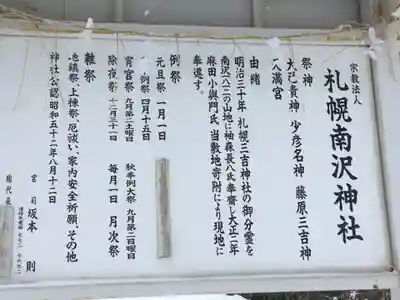 宗教法人
札幌南沢神社
祭神
大己貴神 少彦名神 藤原三吉神
八満宮
由緒
明治三十年 札幌三吉神社の御分霊を
南沢一八二の山地に袖森長八氏奉斎し大正二年
麻田小與門氏、当敷地寄附により現地に
奉遷す。
例祭
元旦祭 一月一日
例祭 四月十五日
宵宮祭 九月第二土曜日 秋季例大祭 九月第二日曜日
除夜祭 十二月三十一日 毎月一日 月次祭
雑祭
地鎮祭、上棟祭、厄祓い、家内安全祈願、その他
神社公認 昭和五十二年八月十二日
宮司 坂本 則
総代長